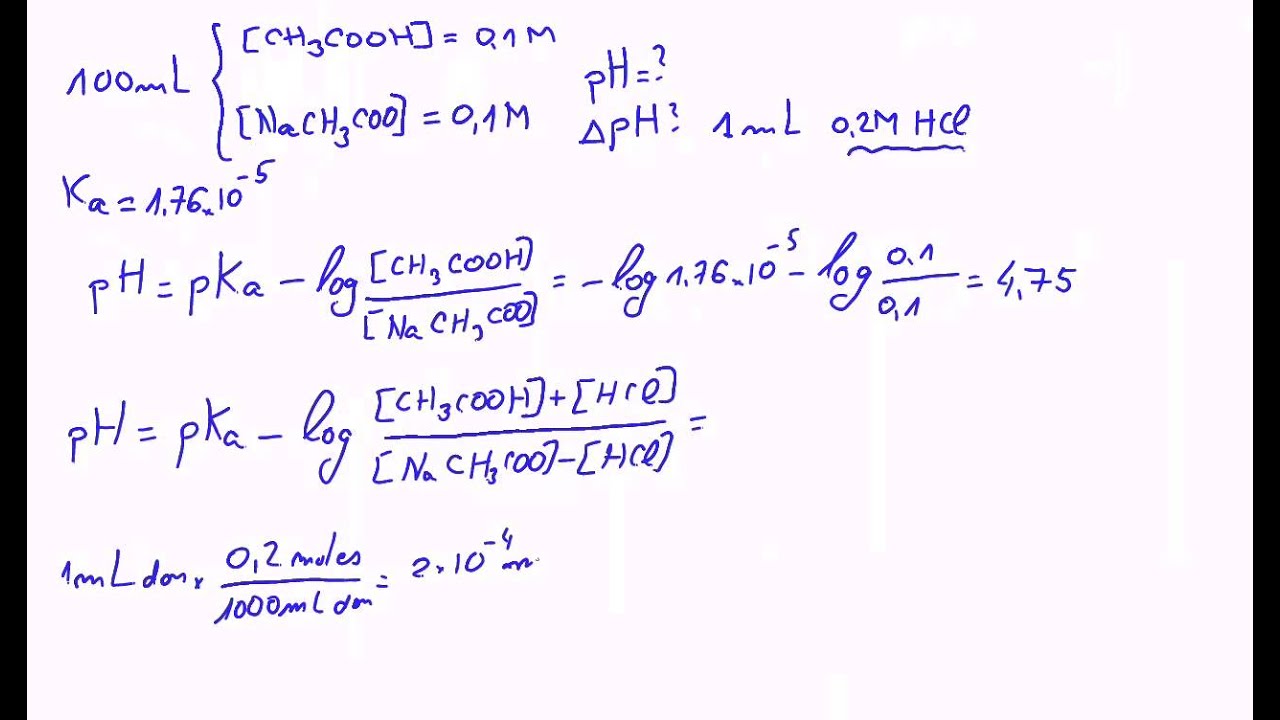 100mL { [CH₃COOH] = 0,1M
[NaCH₃COO] = 0,1M
pH = ?
ΔpH? 1mL 0,2M HCl
Ka = 1,76×10⁻⁵
pH = pKa − log [CH₃COOH]/[NaCH₃COO] = −log 1,76×10⁻⁵ − log 0,1/0,1 = 4,75
pH = pKa − log [CH₃COOH]+[HCl]/[NaCH₃COO]−[HCl] =
1mL don × 0,2 moles/1000mL don = 2×10⁻⁴ m